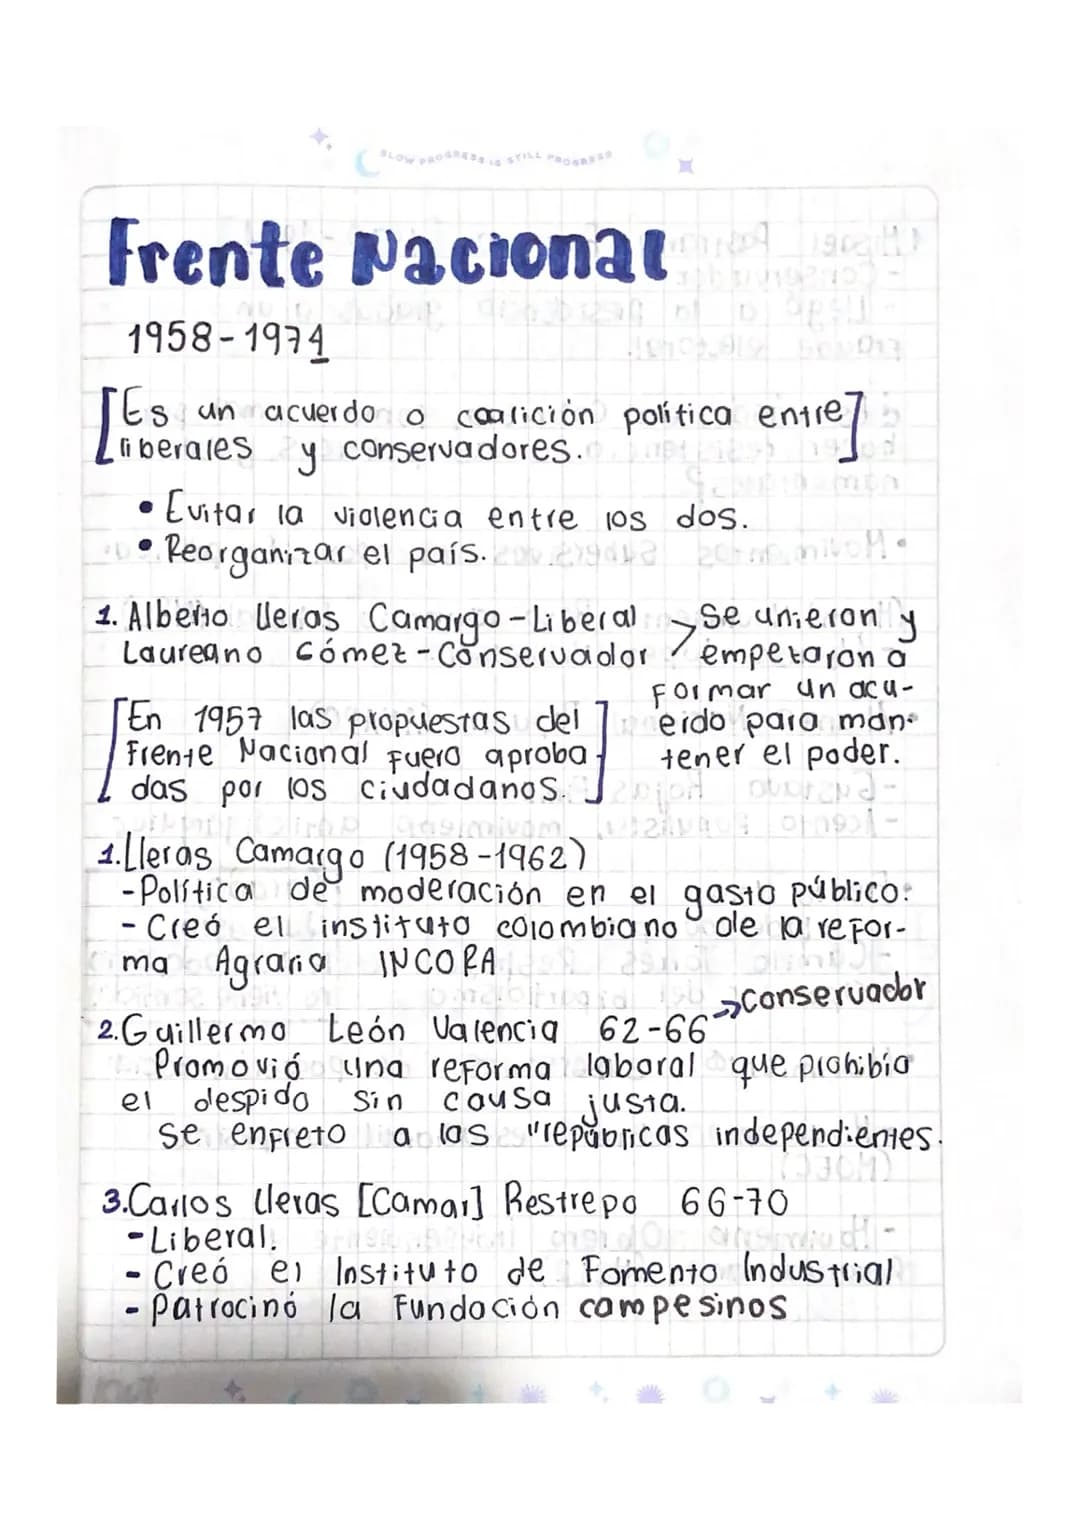 SLOW PROGRESS IS STILL PROGRESS
Frente Nacional
1958-1974
[Es un acuerdo o coalición política entre
liberales y conservadores.]
• Evitar la violencia entre los dos.
• Reorganizar el país.
1. Alberto lleras Camargo-Liberal
Laureano Gómez-Conservador
→ Se unieron y
empezaron a
Formar un acu-
erdo para man-
tener el poder.
[En 1957 las propuestas del
Frente Nacional fuero aproba
das por los ciudadanos.]
1. Lleras Camargo (1958-1962)
- Política de moderación en el gasto público.
- Creó el instituto colombiano de la refor-
ma Agraria INCORA
2. Guillermo León Valencia 62-66 → conservador
Promovió una reforma laboral que prohibía
el despido sin causa justa.
se enfreto a las "repúblicas independientes.
3. Carlos lleras [Camar] Restrepo 66-70
- Liberal.
- Creó el Instituto de Fomento Industrial
- Patrocinó la Fundación campesinos